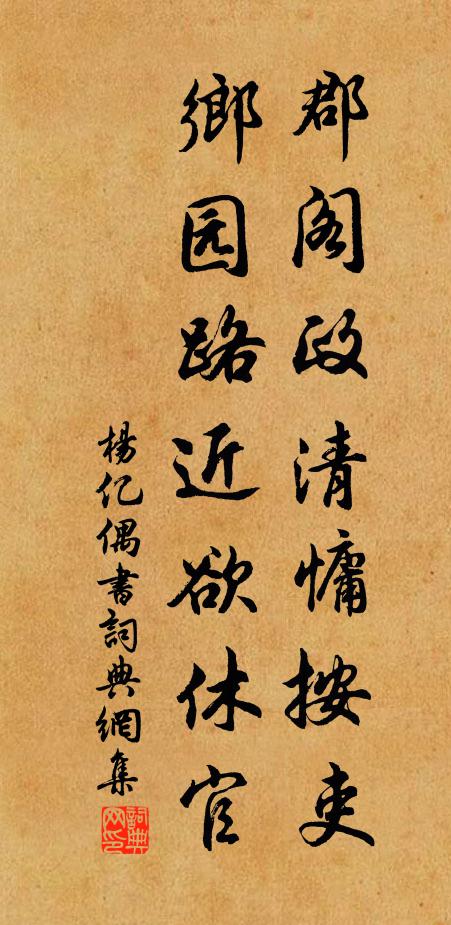 郡阁政清慵按吏
鄉园路近欲休官
楊亿偶書詞典網集
詞典网印